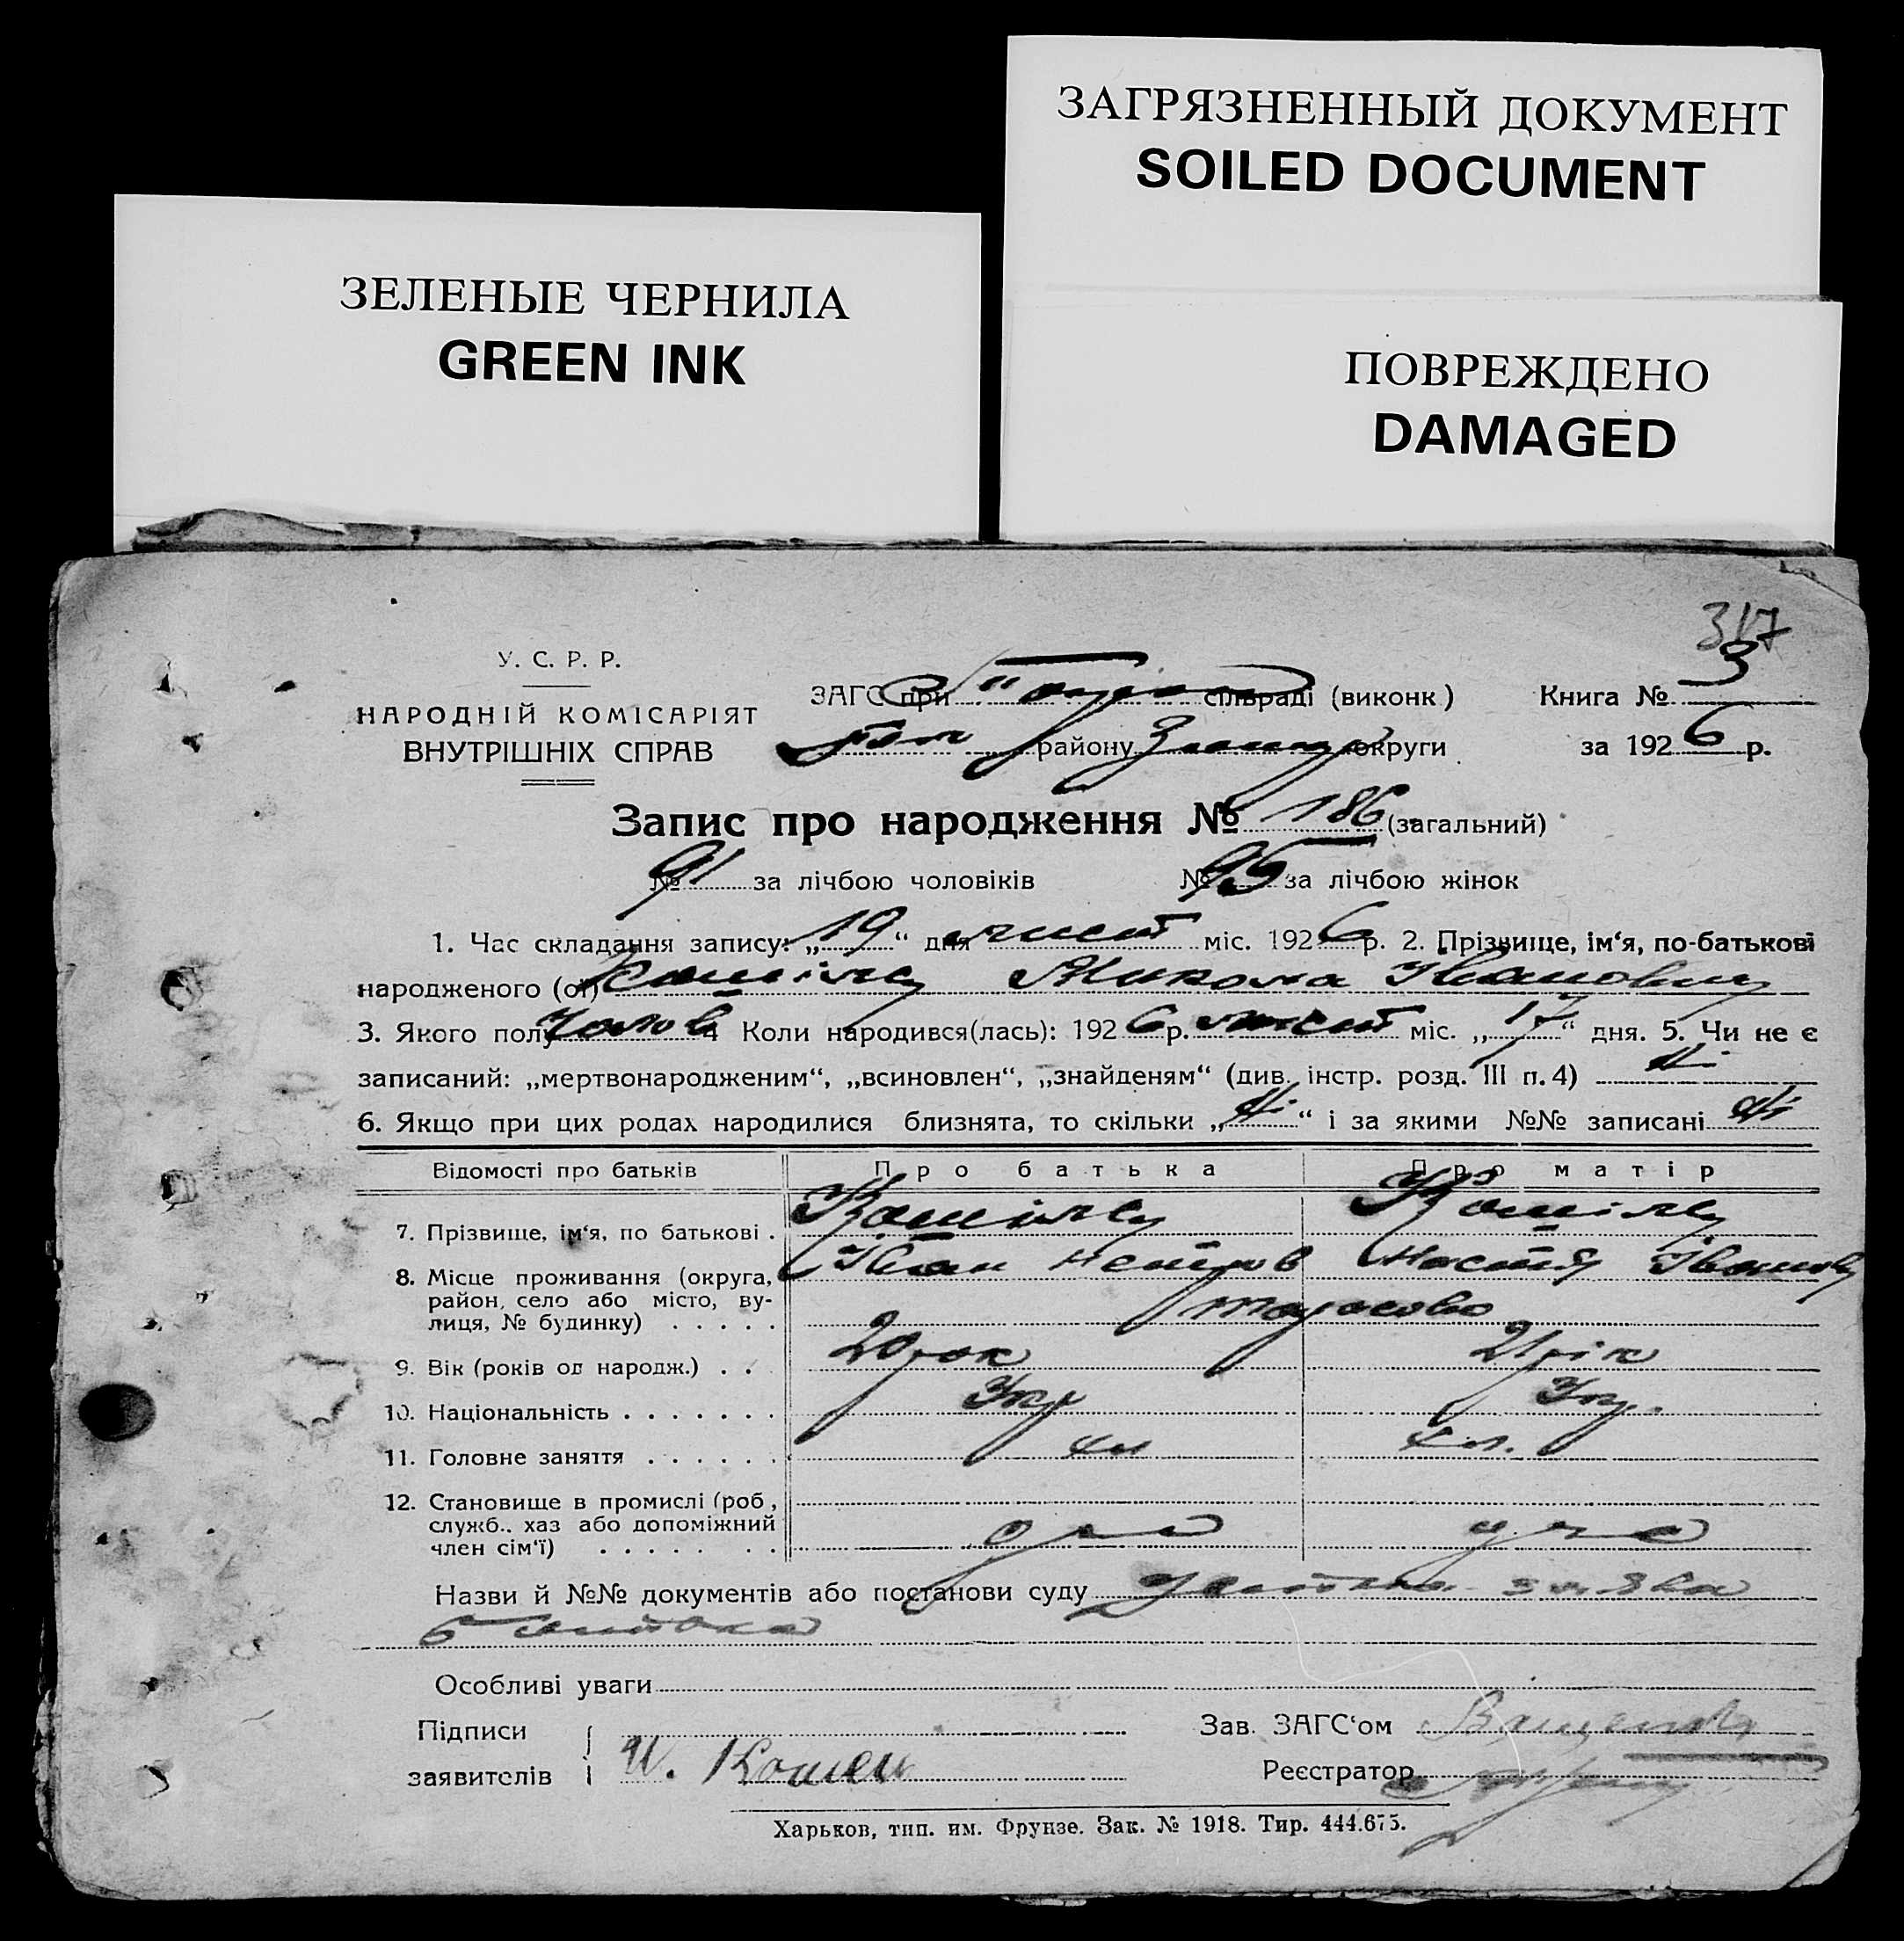 ЗАГРЯЗНЕННЫЙ ДОКУМЕНТ
SOILED DOCUMENT
ЗЕЛЕНЫЕ ЧЕРНИЛА
GREEN INK
ПОВРЕЖДЕНО
DAMAGED
317
У. С. Р. Р.
НАРОДНІЙ КОМІСАРІЯТ
ВНУТРІШНІХ СПРАВ
ЗАГС при сільраді (виконк)
району округи
Книга № 3
за 1926 р.
Запис про народження № 186 (загальний)
№ 91 за лічбою чоловіків № 95 за лічбою жінок
1. Час складання запису: „19“ дня лист міс. 1926 р. 2. Прізвище, ім‘я, по-батькові
народженого (ої) Микола Іванович
3. Якого полу Чолов 4 Коли народився(лась): 1926 р. лист міс. „17“ дня. 5. Чи не є
записаний: „мертвонародженим“, „всиновлен“, „знайденям“ (див. інстр. розд. III п. 4) Ні
6. Якщо при цих родах народилися близнята, то скільки „Ні“ і за якими №№ записані Ні
Відомості про батьків Про батька Про матір
7. Прізвище, ім‘я, по батькові .
Іван Петров Настя Іванов
8. Місце проживання (округа, район, село або місто, вулиця, № будинку) . . . . . Тарасовка
9. Вік (років од народж.) . . 20 рок 21 рік
10. Національність . . . . . . . Укр Укр.
11. Головне заняття . . . . . .
12. Становище в промислі (роб, служб.. хаз або допоміжний член сім‘ї) . . . . . . .
Назви й №№ документів або постанови суду заява
батька
Особливі уваги
Підписи
заявителів
Зав. ЗАГС‘ом
Реєстратор
Харьков, тип. им. Фрунзе. Зак. № 1918. Тир. 444.675.